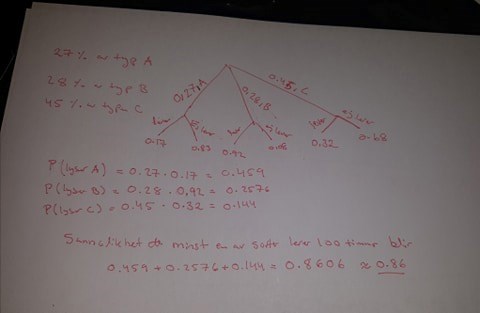 27% av typ A
28% av typ B
45% av typ C
0.27, A
0.28, B
0.45, C
lyser
ej lyser
lyser
ej lyser
lyser
ej lyser
0.17
0.83
0.92
0.08
0.32
0.68
P(lyser A) = 0.27 · 0.17 = 0.459
P(lyser B) = 0.28 · 0.92 = 0.2576
P(lyser C) = 0.45 · 0.32 = 0.144
Sannolikhet att minst en av lyser 100 timmar blir
0.459 + 0.2576 + 0.144 = 0.8606 ≈ 0.86